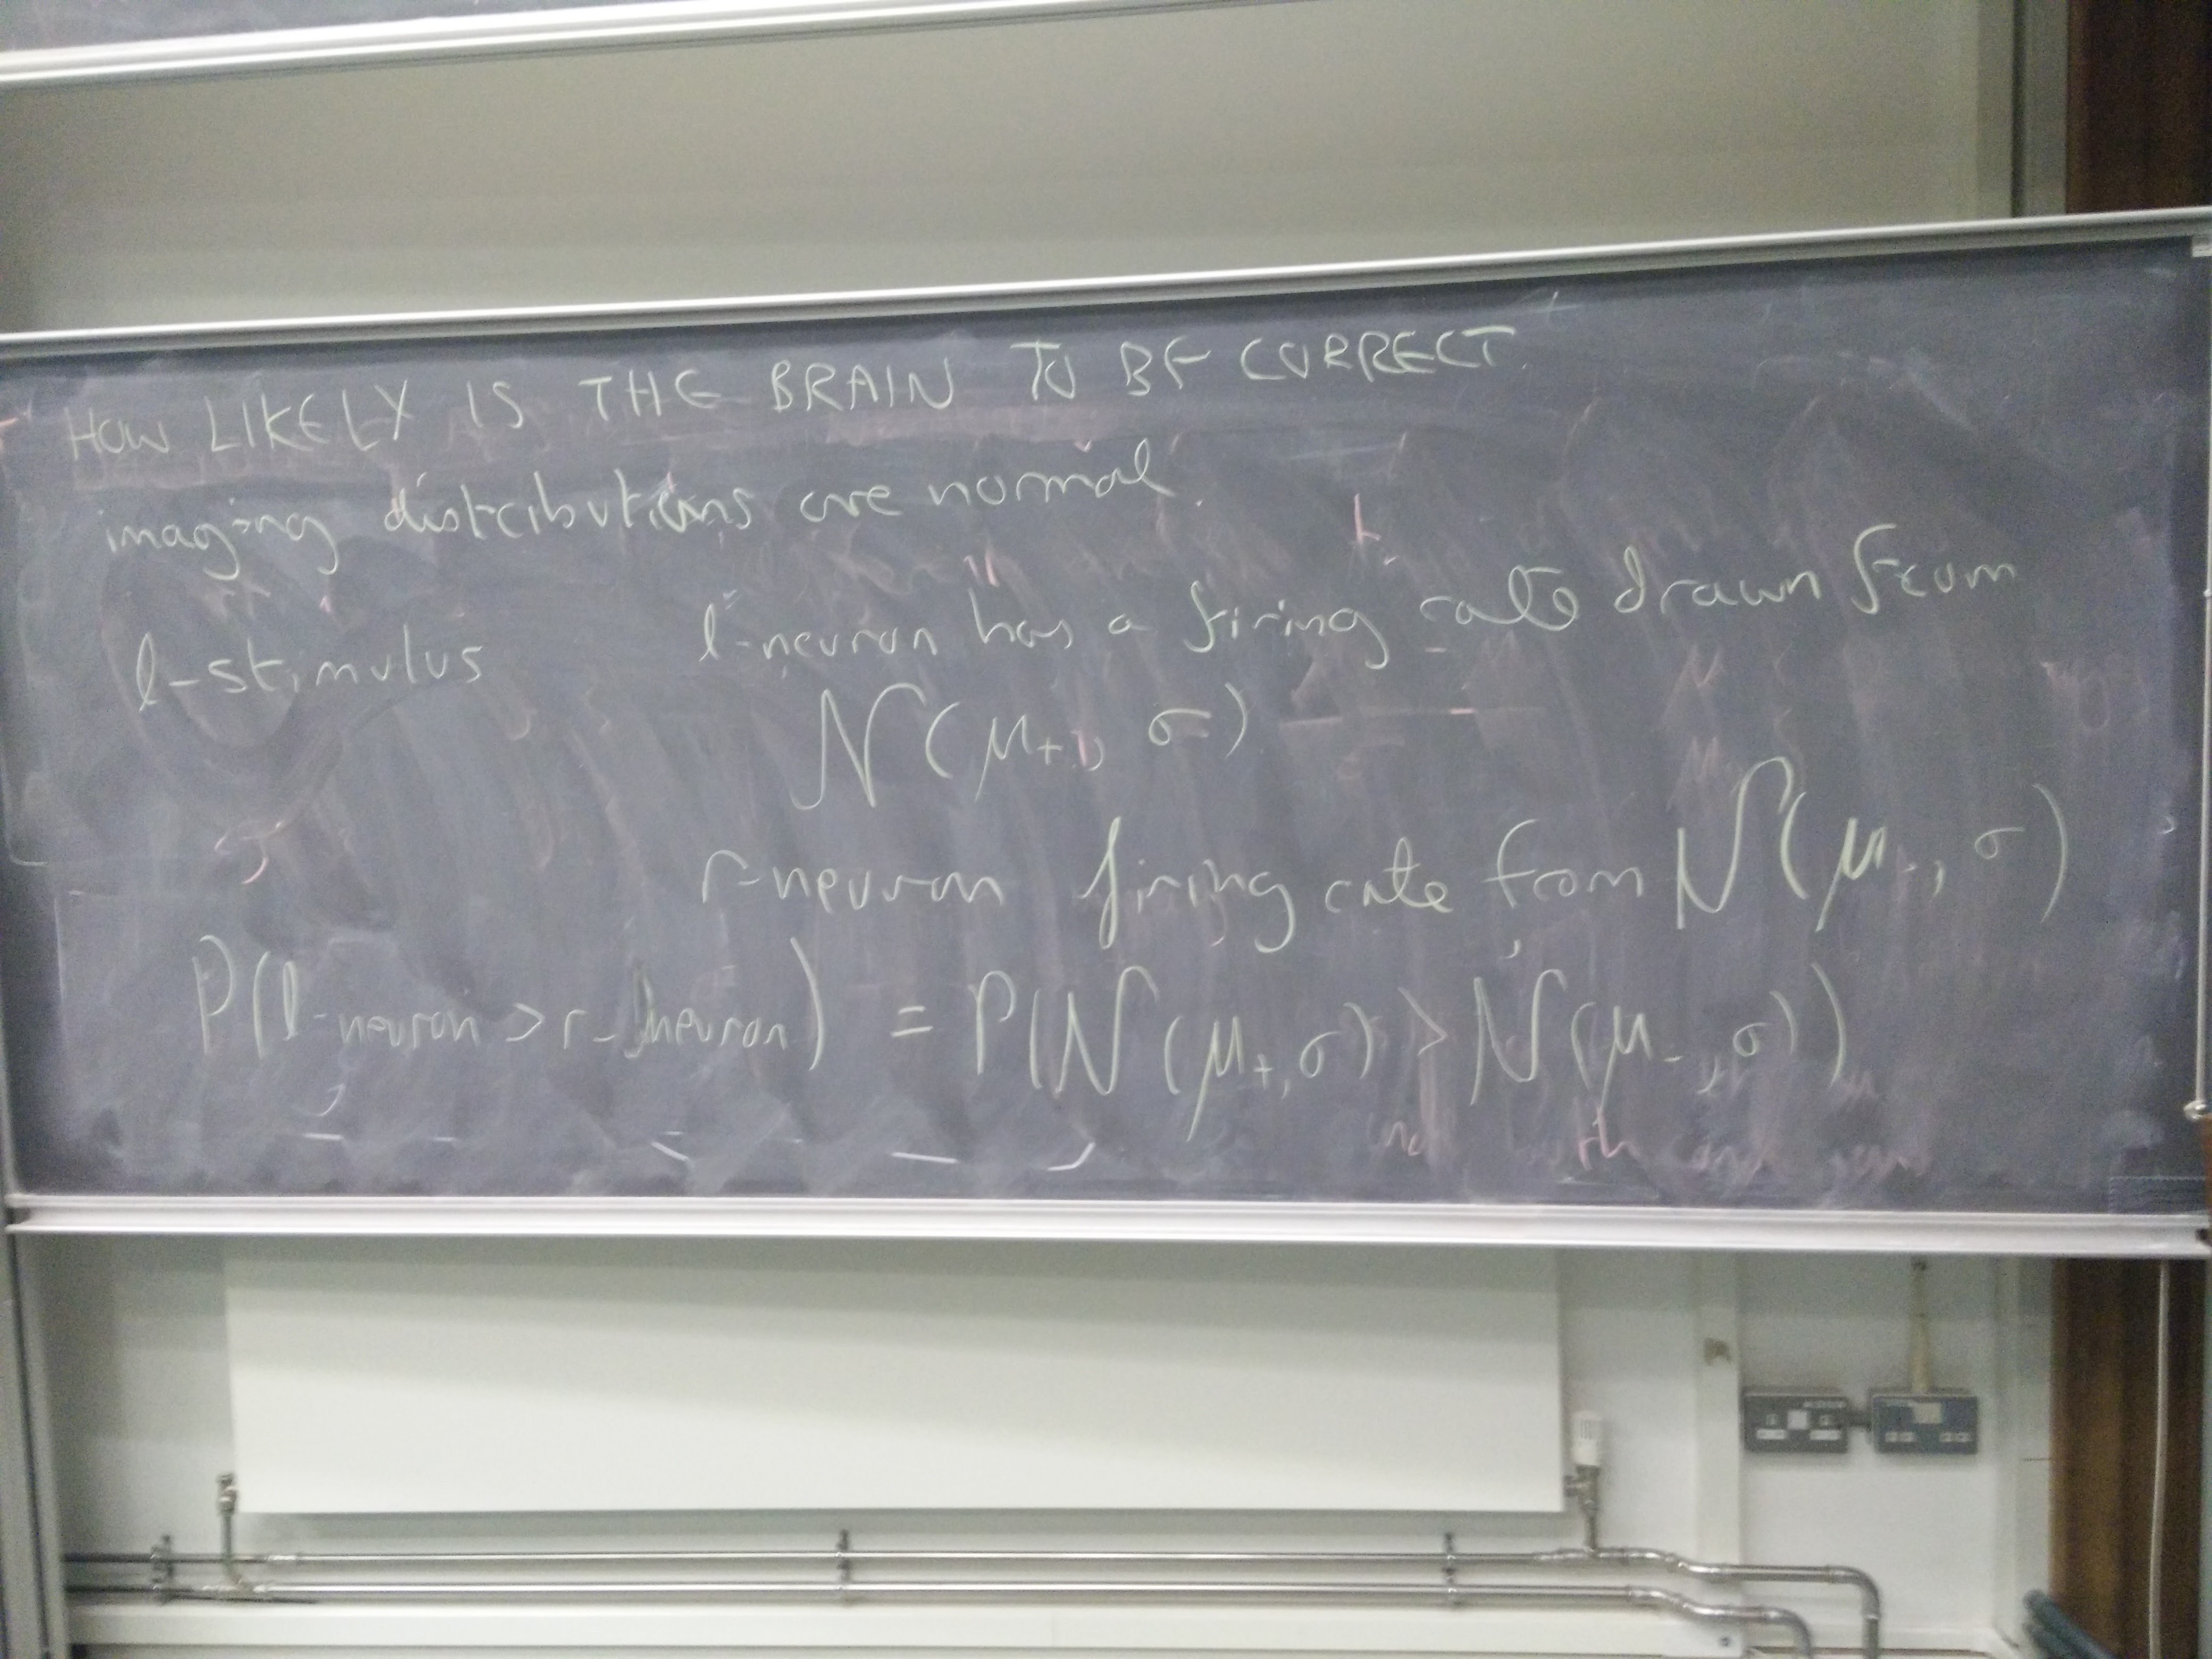 HOW LIKELY IS THE BRAIN TO BE CORRECT.
imaging distributions are normal.
l-stimulus l-neuron has a firing rate drawn from
N(μ+, σ)
r-neuron firing rate from N(μ-, σ)
P(l-neuron > r-neuron) = P(N(μ+, σ) > N(μ-, σ))